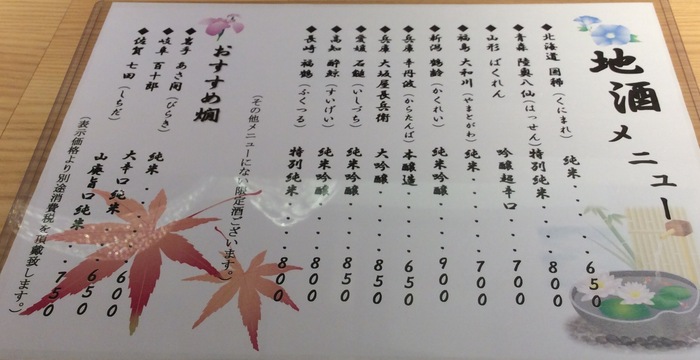 地酒メニュー
◆北海道 国稀(くにまれ) 純米・・・・650
◆青森 陸奥八仙(はっせん)特別純米・・・・800
◆山形 ばくれん 吟醸超辛口・・・700
◆福島 大和川(やまとがわ) 純米・・・・700
◆新潟 鶴齢(かくれい) 純米吟醸・・・・900
◆兵庫 辛丹波(からたんば) 本醸造・・・・650
◆兵庫 大坂屋長兵衛 大吟醸・・・・850
◆愛媛 石鎚(いしづち) 純米吟醸・・・・850
◆高知 酔鯨(すいげい) 純米吟醸・・・・800
◆長崎 福鶴(ふくつる) 特別純米・・・・800
(その他メニューにない限定酒ございます。)
おすすめ燗
◆岩手 あさ開(びらき) 純米・・・・600
◆岐阜 百十郎 大辛口 純米・・・・650
◆佐賀 七田(しちだ) 山廃旨口 純米・・・750
(表示価格より別途消費税を頂戴致します。)